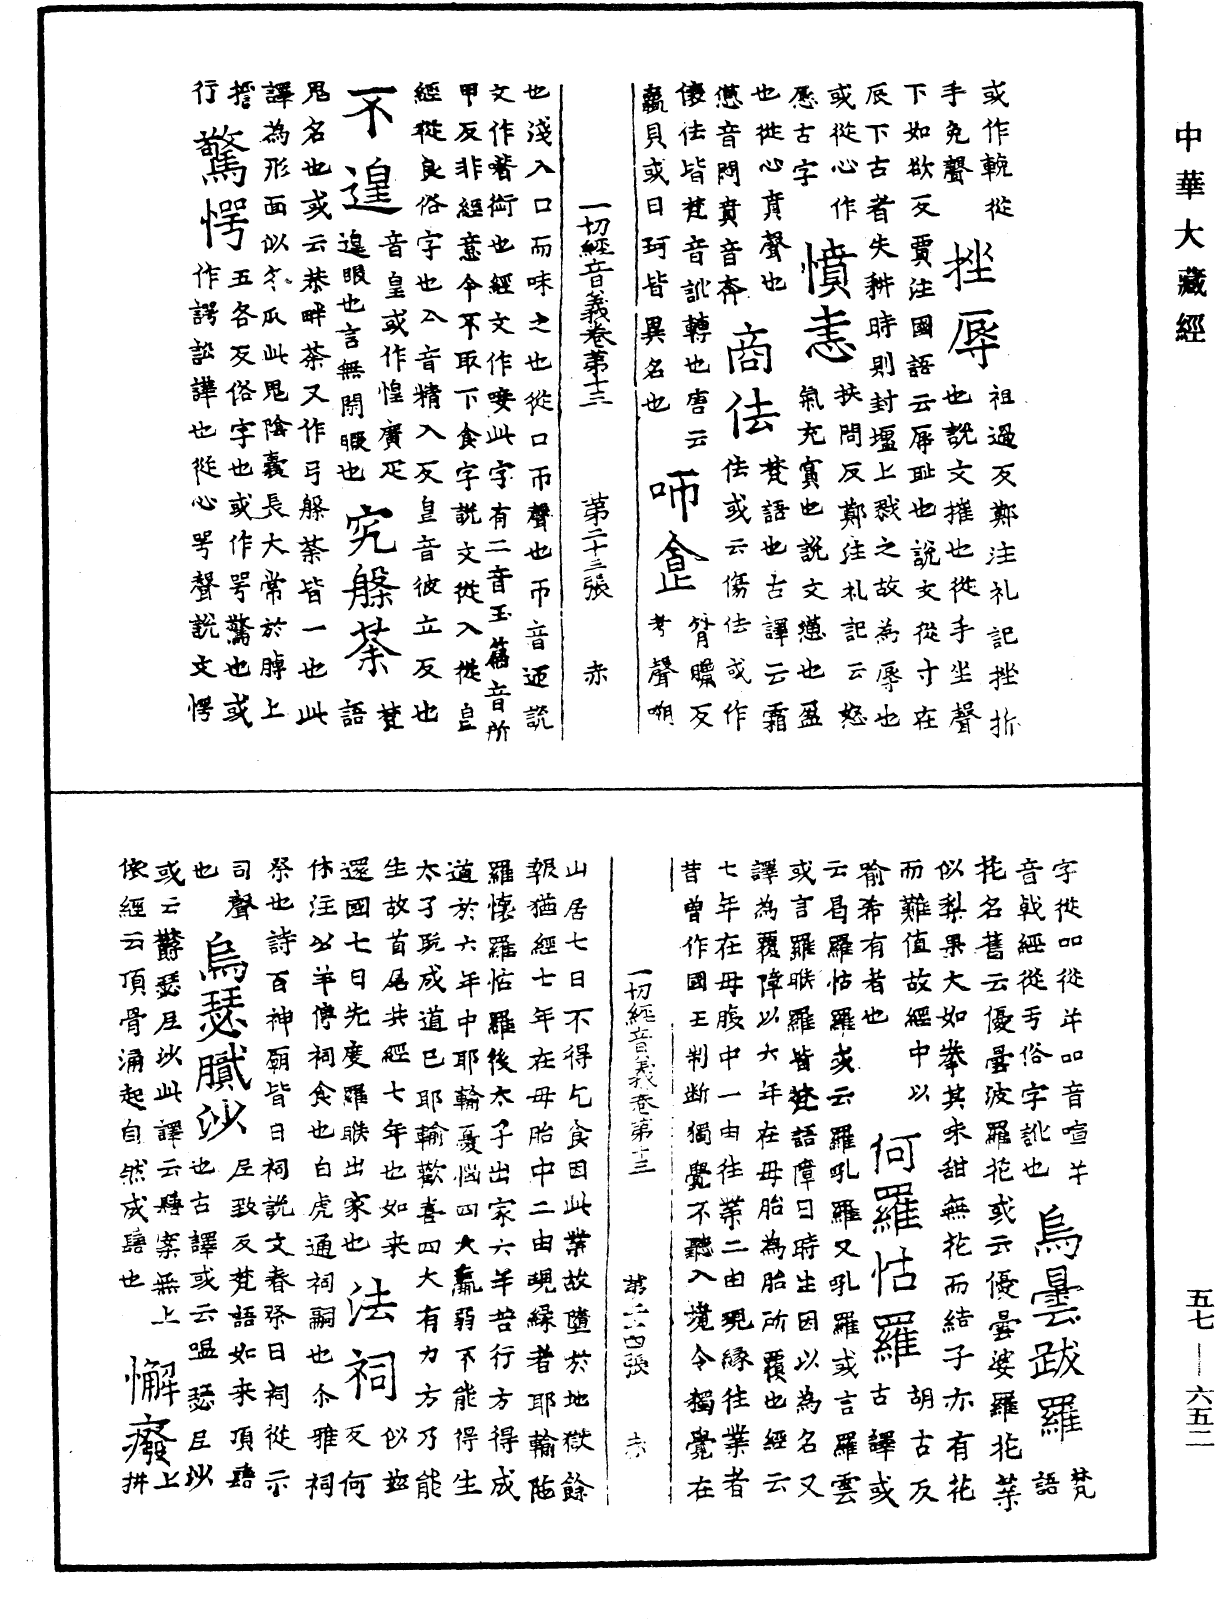 中華大藏經
或作輓從
手免聲
挫辱
祖過反鄭注礼記挫折
也說文摧也從手坐聲
下如欲反賈注國語云辱耻也說文從寸在
辰下古者失耕時則封壇上戮之故為辱也
或從心作
憤恚
扶問反鄭注礼記云怒
氣充實也說文懣也盈
也從心賁聲也
商佉
梵語也古譯云霜
佉或云傷佉或作
儴佉皆梵音訛轉也唐云
蠡貝或曰珂皆異名也
一切經音義卷第十三
第二十三張
赤
也淺入口而味之也從口帀聲也帀音迊說
甲反非經意今不取下食字說文從入從皀
經從良俗字也亼音精入反皀音彼立反也
不遑
音皇或作惶廣疋
遑暇也言無閒暇也
究槃荼
梵
語
鬼名也或云恭畔荼又作弓槃荼皆一也此
譯為形面似冬瓜此鬼陰囊長大常於髆上
擔
行
驚愕
五各反俗字也或作咢驚也或
作諤訟譁也從心咢聲說文愕
字從吅從屰吅音喧屰
音戟經從亏俗字訛也
烏曇跋羅
梵
語
花名舊云優曇波羅花或云優曇婆羅花葉
似梨果大如拳其味甜無花而結子亦有花
而難值故經中以
喻希有者也
何羅怙羅
胡古反
古譯或
云曷羅怙羅或云羅吼羅又吼羅或言羅雲
或言羅睺羅皆梵語障日時生因以為名又
譯為覆障以六年在母胎為胎所覆也經云
七年在母腹中一由往業二由現緣往業者
昔曾作國王判斷獨覺不聽入境令獨覺在
一切經音義卷第十三
第二十四張
赤
山居七日不得乞食因此業故墮於地獄餘
報猶經七年在母胎中二由現緣者耶輸陁
羅懷羅怙羅後太子出家六年苦行方得成
道於六年中耶輸憂惱四大羸弱不能得生
太子旣成道已耶輸歡喜四大有力方乃能
生故首尾共經七年也如來
還國七日先度羅睺出家也
法祠
似玆
反何
休注公羊傳祠食也白虎通祠嗣也尒雅祠
祭也詩百神廟皆曰祠說文春祭曰祠從示
司聲
也
烏瑟膩沙
尼致反梵語如來頂髻
也古譯或云嗢瑟尼沙
或云欝瑟尼沙此譯云髻案無上
依經云頂骨涌起自然成髻也
懈癈
五七—六五二